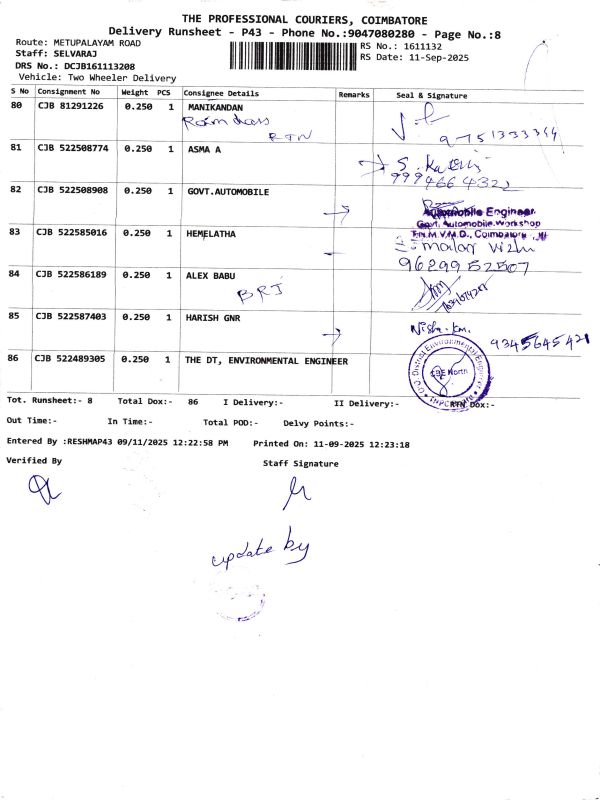 THE PROFESSIONAL COURIERS, COIMBATORE
Delivery Runsheet - P43 - Phone No.:9047080280 - Page No.:8
Route: METUPALAYAM ROAD
Staff: SELVARAJ
DRS No.: DCJB161113208
Vehicle: Two Wheeler Delivery
RS No.: 1611132
RS Date: 11-Sep-2025
S No Consignment No Weight PCS Consignee Details Remarks Seal & Signature
80 CJB 81291226 0.250 1 MANIKANDAN
RTN 9751333344
81 CJB 522508774 0.250 1 ASMA A
9994664322
82 CJB 522508908 0.250 1 GOVT.AUTOMOBILE
Automobile Engineer
Govt. Automobile Workshop
T.N.M.V.M.D., Coimbatore
83 CJB 522585016 0.250 1 HEMELATHA
malar vizhi
9629952507
84 CJB 522586189 0.250 1 ALEX BABU
85 CJB 522587403 0.250 1 HARISH GNR
Nisha.km. 9345645421
86 CJB 522489305 0.250 1 THE DT, ENVIRONMENTAL ENGINEER
District Environmental Engineer
CBE North
Tot. Runsheet:- 8 Total Dox:- 86 I Delivery:- II Delivery:- RTN Dox:-
Out Time:- In Time:- Total POD:- Delvy Points:-
Entered By :RESHMAP43 09/11/2025 12:22:58 PM Printed On: 11-09-2025 12:23:18
Verified By Staff Signature
update by